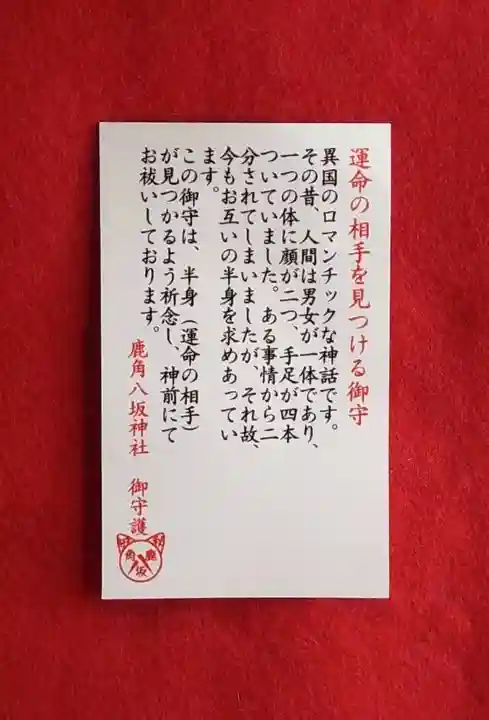 運命の相手を見つける御守
異国のロマンチックな神話です。
その昔、人間は男女が一体であり、
一つの体に顔が二つ、手足が四本
ついていました。ある事情から二
分されてしまいましたが、それ故、
今もお互いの半身を求めあってい
ます。
この御守は、半身（運命の相手）
が見つかるよう祈念し、神前にて
お祓いしております。
鹿角八坂神社 御守護